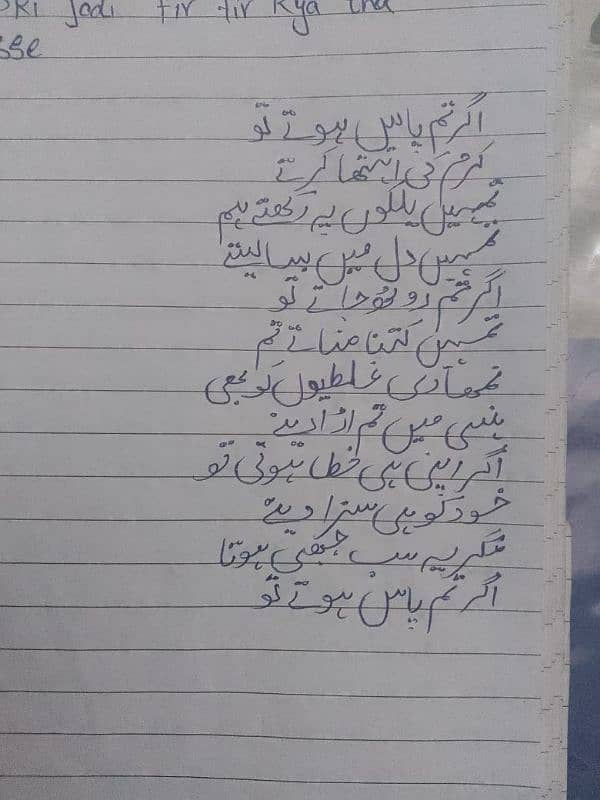 jodi fir fir Kya tha
sse
اگر تم پاس ہوتے تو
کرم کی انتھا کرتے
تمہیں پلکوں پہ رکھتے ہم
تمہیں دل میں بسا لیتے
اگر تم روٹھ جاتے تو
تمہیں کتنا مناتے تم
تمھاری غلطیوں کو بھی
ہنسی میں تم اڑا دیتے
اگر اپنی ہی خطا ہوتی تو
خود کو ہی سزا دیتے
مگر یہ سب جبھی ہوتا
اگر تم پاس ہوتے تو